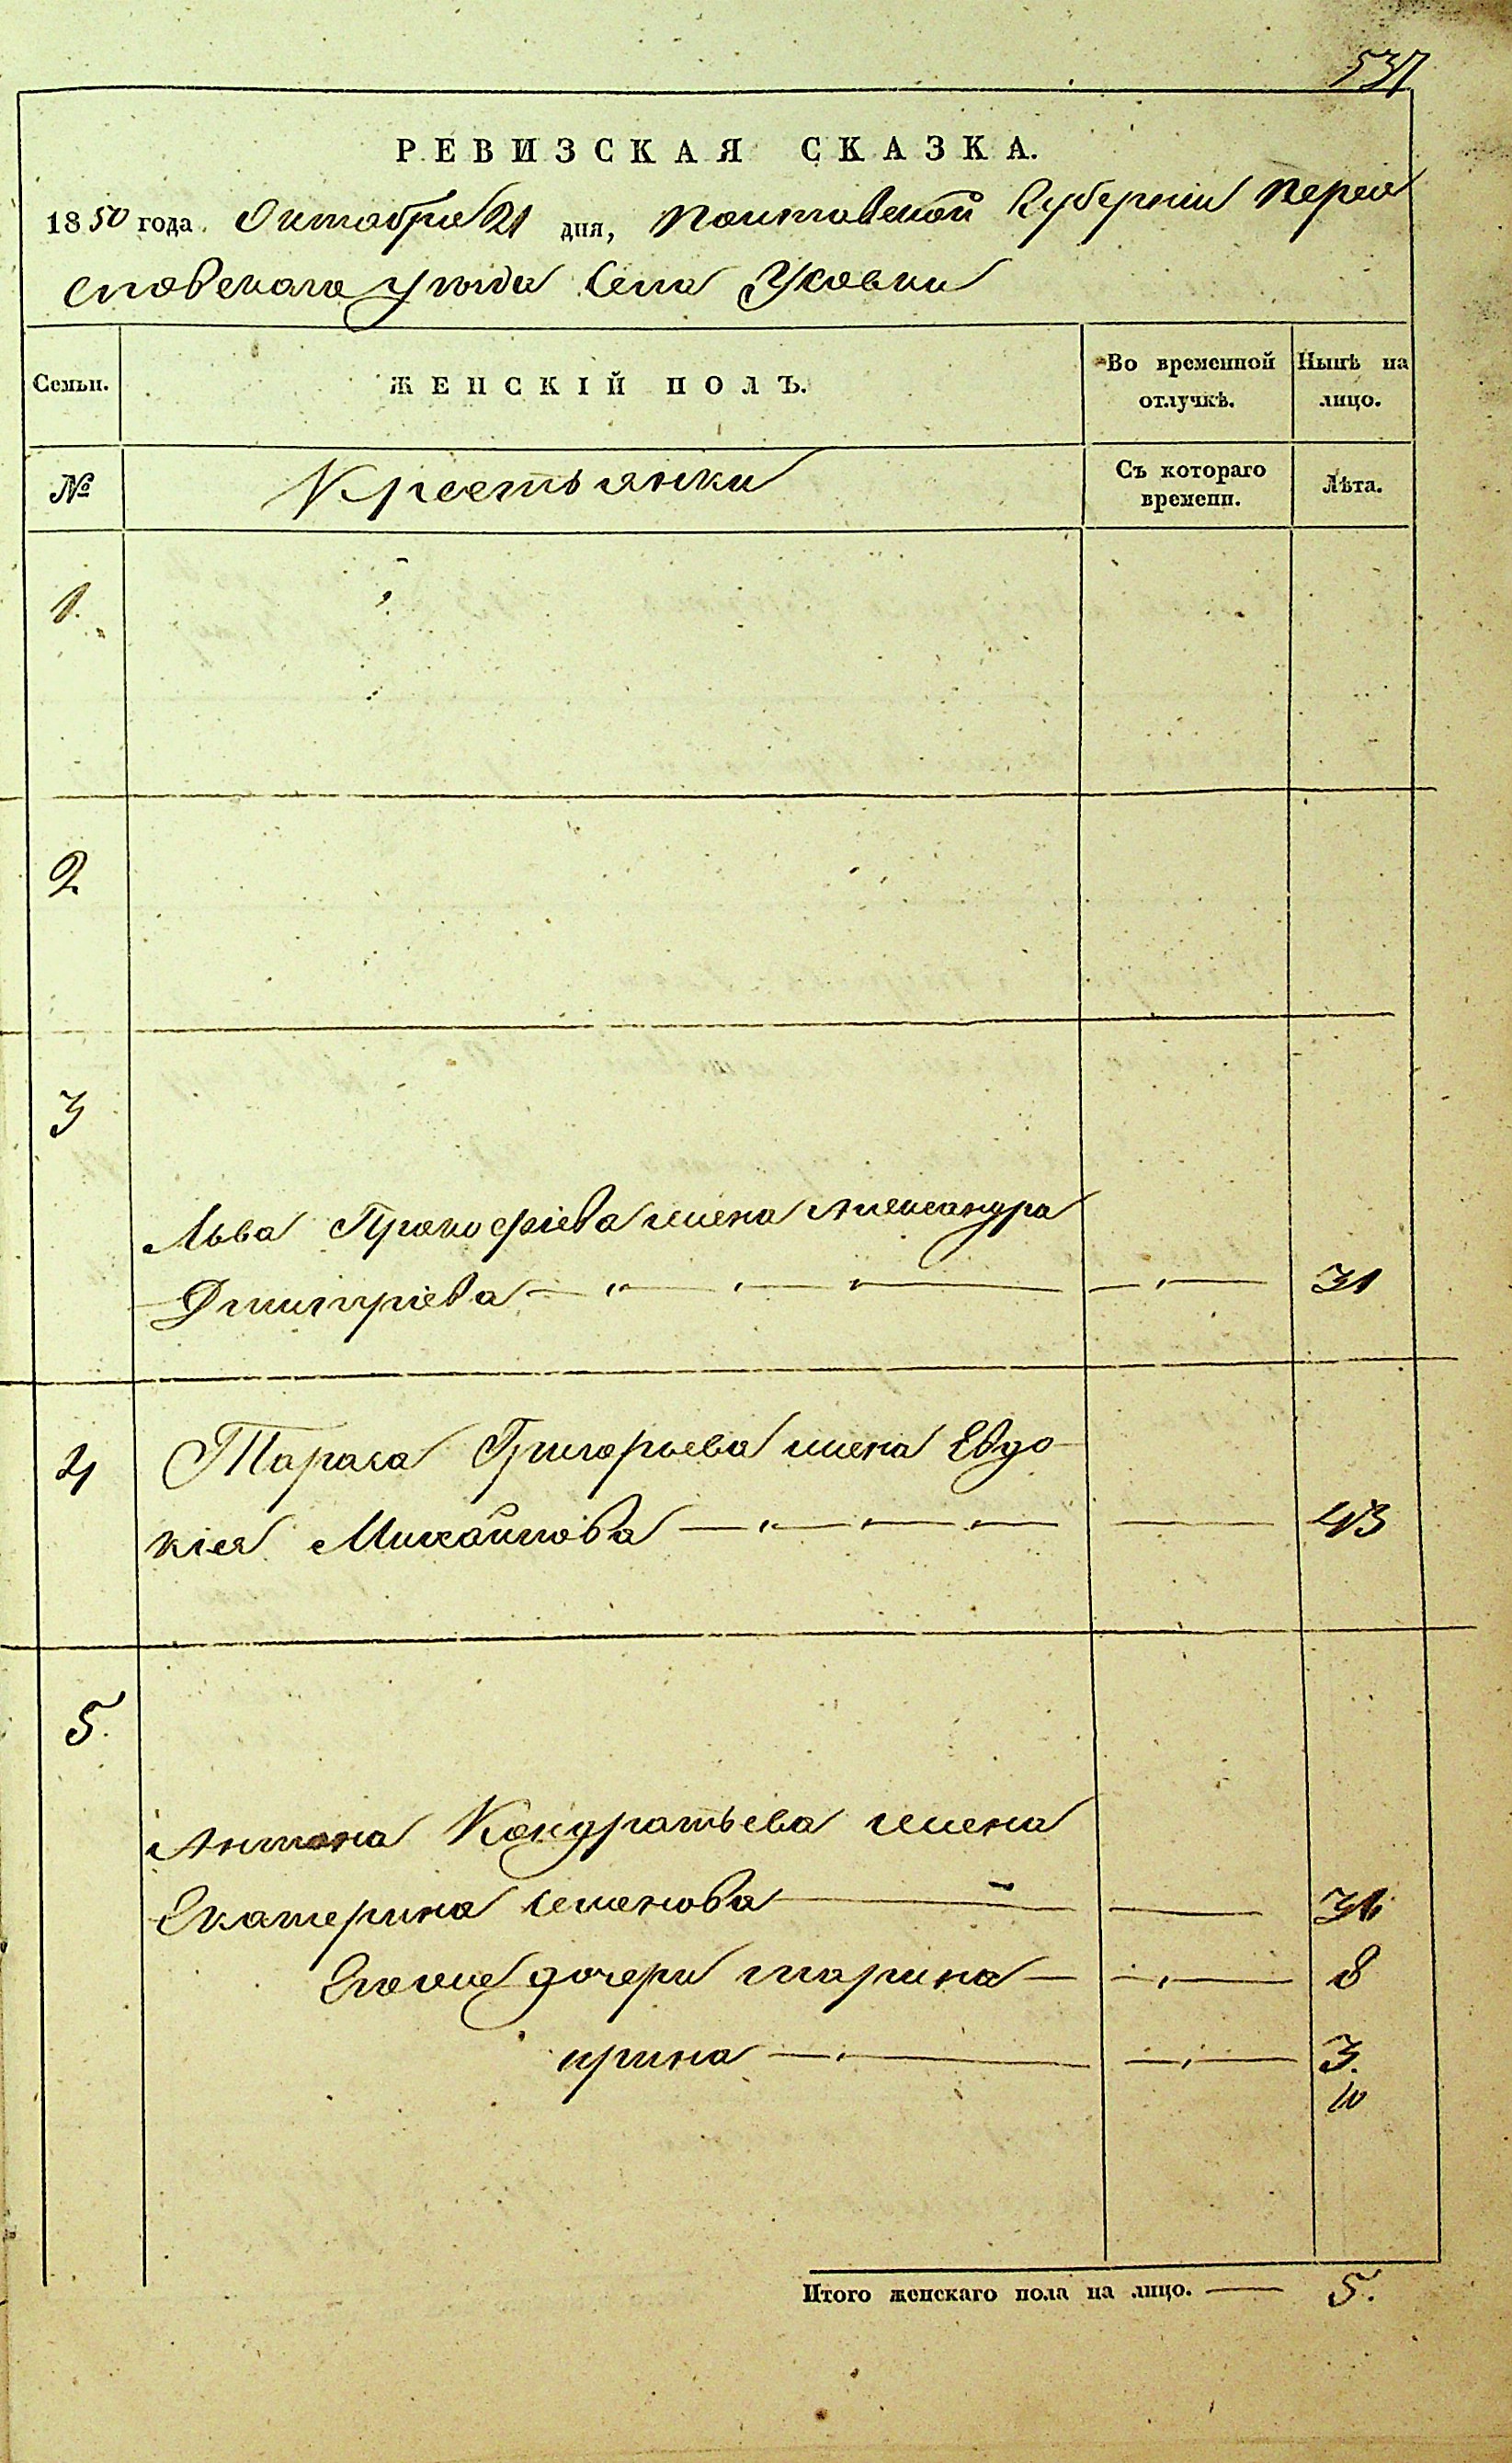 537
РЕВИЗСКАЯ СКАЗКА.
1850 года Октября 21 дня, Полтавской Губернии Перея
словскаго уезда Села Усовки
Семьи. ЖЕНСКІЙ ПОЛЪ. Во временной отлучкѣ. Нынѣ на лицо.
№ Крестьянки Съ котораго времени. Лѣта.
1.
2
3
Льва Прокофіева жена Александра
Дмитріева 31
4 Тараса Григорьева жена Евдо
кія Михайлова 43
5.
Антона Кондратьева жена
Екатерина Семенова
Ево дочери Марина 8
Ирина 3.
10
Итого женскаго пола на лицо. 5.